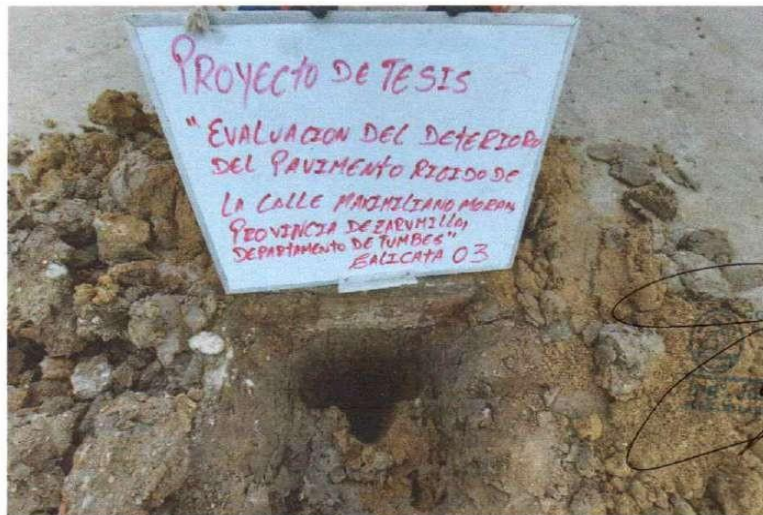 PROYECTO DE TESIS
"EVALUACION DEL DETERIORO
DEL PAVIMENTO RIGIDO DE
LA CALLE MAXIMILIANO MORAN,
PROVINCIA DE ZARUMILLA,
DEPARTAMENTO DE TUMBES"
CALICATA 03